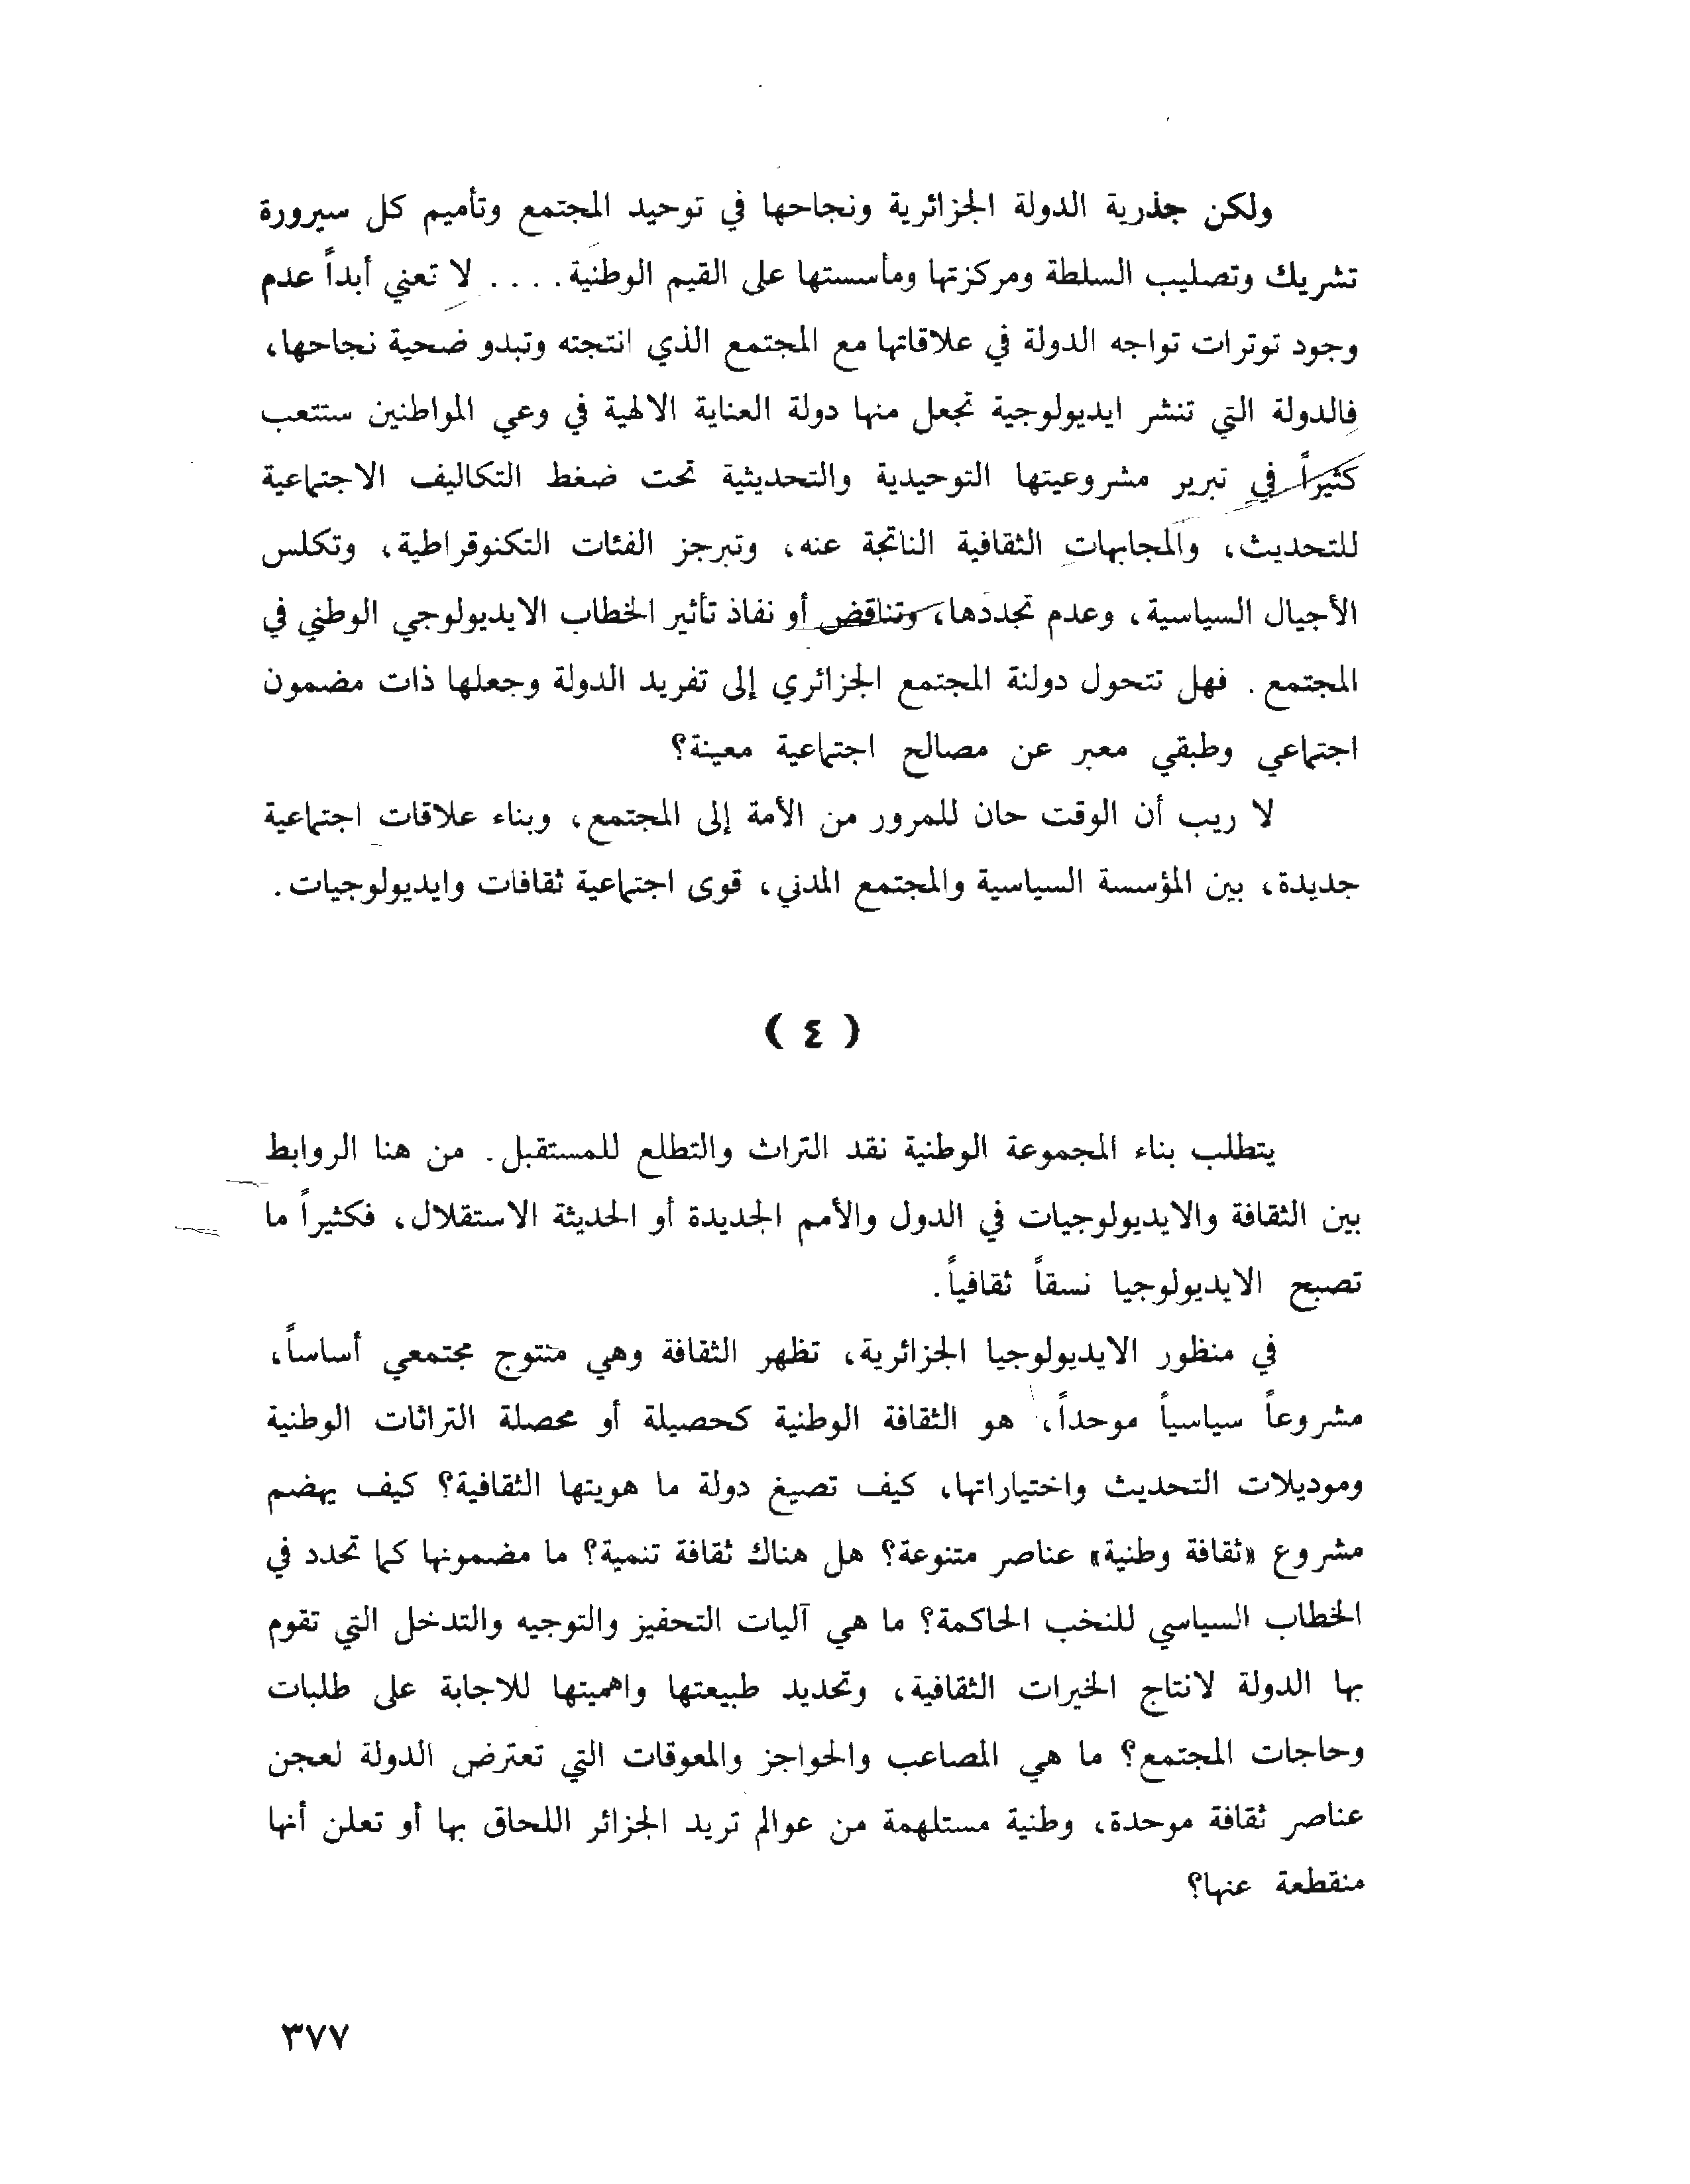 ولكن جذرية الدولة الجزائرية ونجاحها في توحيد المجتمع وتأميم كل سيرورة
تشريك وتصليب السلطة ومركزتها ومأسستها على القيم الوطنية. . . . لا تعني أبداً عدم
وجود توترات تواجه الدولة في علاقاتها مع المجتمع الذي انتجته وتبدو ضحية نجاحها،
فالدولة التي تنشر ايديولوجية تجعل منها دولة العناية الالهية في وعي المواطنين ستتعب
كثيراً في تبرير مشروعيتها التوحيدية والتحديثية تحت ضغط التكاليف الاجتماعية
للتحديث، والمجابهات الثقافية الناتجة عنه، وتبرجز الفئات التكنوقراطية، وتكلس
الأجيال السياسية، وعدم تجددها، وتناقض أو نفاذ تأثير الخطاب الايديولوجي الوطني في
المجتمع. فهل تتحول دولنة المجتمع الجزائري إلى تفريد الدولة وجعلها ذات مضمون
اجتماعي وطبقي معبر عن مصالح اجتماعية معينة؟
لا ريب أن الوقت حان للمرور من الأمة إلى المجتمع، وبناء علاقات اجتماعية
جديدة، بين المؤسسة السياسية والمجتمع المدني، قوى اجتماعية ثقافات وايديولوجيات.
( ٤ )
يتطلب بناء المجموعة الوطنية نقد التراث والتطلع للمستقبل. من هنا الروابط
بين الثقافة والايديولوجيات في الدول والأمم الجديدة أو الحديثة الاستقلال، فكثيراً ما
تصبح الايديولوجيا نسقاً ثقافياً.
في منظور الايديولوجيا الجزائرية، تظهر الثقافة وهي منتوج مجتمعي أساساً،
مشروعاً سياسياً موحداً، هو الثقافة الوطنية كحصيلة أو محصلة التراثات الوطنية
وموديلات التحديث واختياراتها، كيف تصيغ دولة ما هويتها الثقافية؟ كيف يهضم
مشروع «ثقافة وطنية» عناصر متنوعة؟ هل هناك ثقافة تنمية؟ ما مضمونها كما تحدد في
الخطاب السياسي للنخب الحاكمة؟ ما هي آليات التحفيز والتوجيه والتدخل التي تقوم
بها الدولة لانتاج الخيرات الثقافية، وتحديد طبيعتها واهميتها للاجابة على طلبات
وحاجات المجتمع؟ ما هي المصاعب والحواجز والمعوقات التي تعترض الدولة لعجن
عناصر ثقافة موحدة، وطنية مستلهمة من عوالم تريد الجزائر اللحاق بها أو تعلن أنها
منقطعة عنها؟
٣٧٧